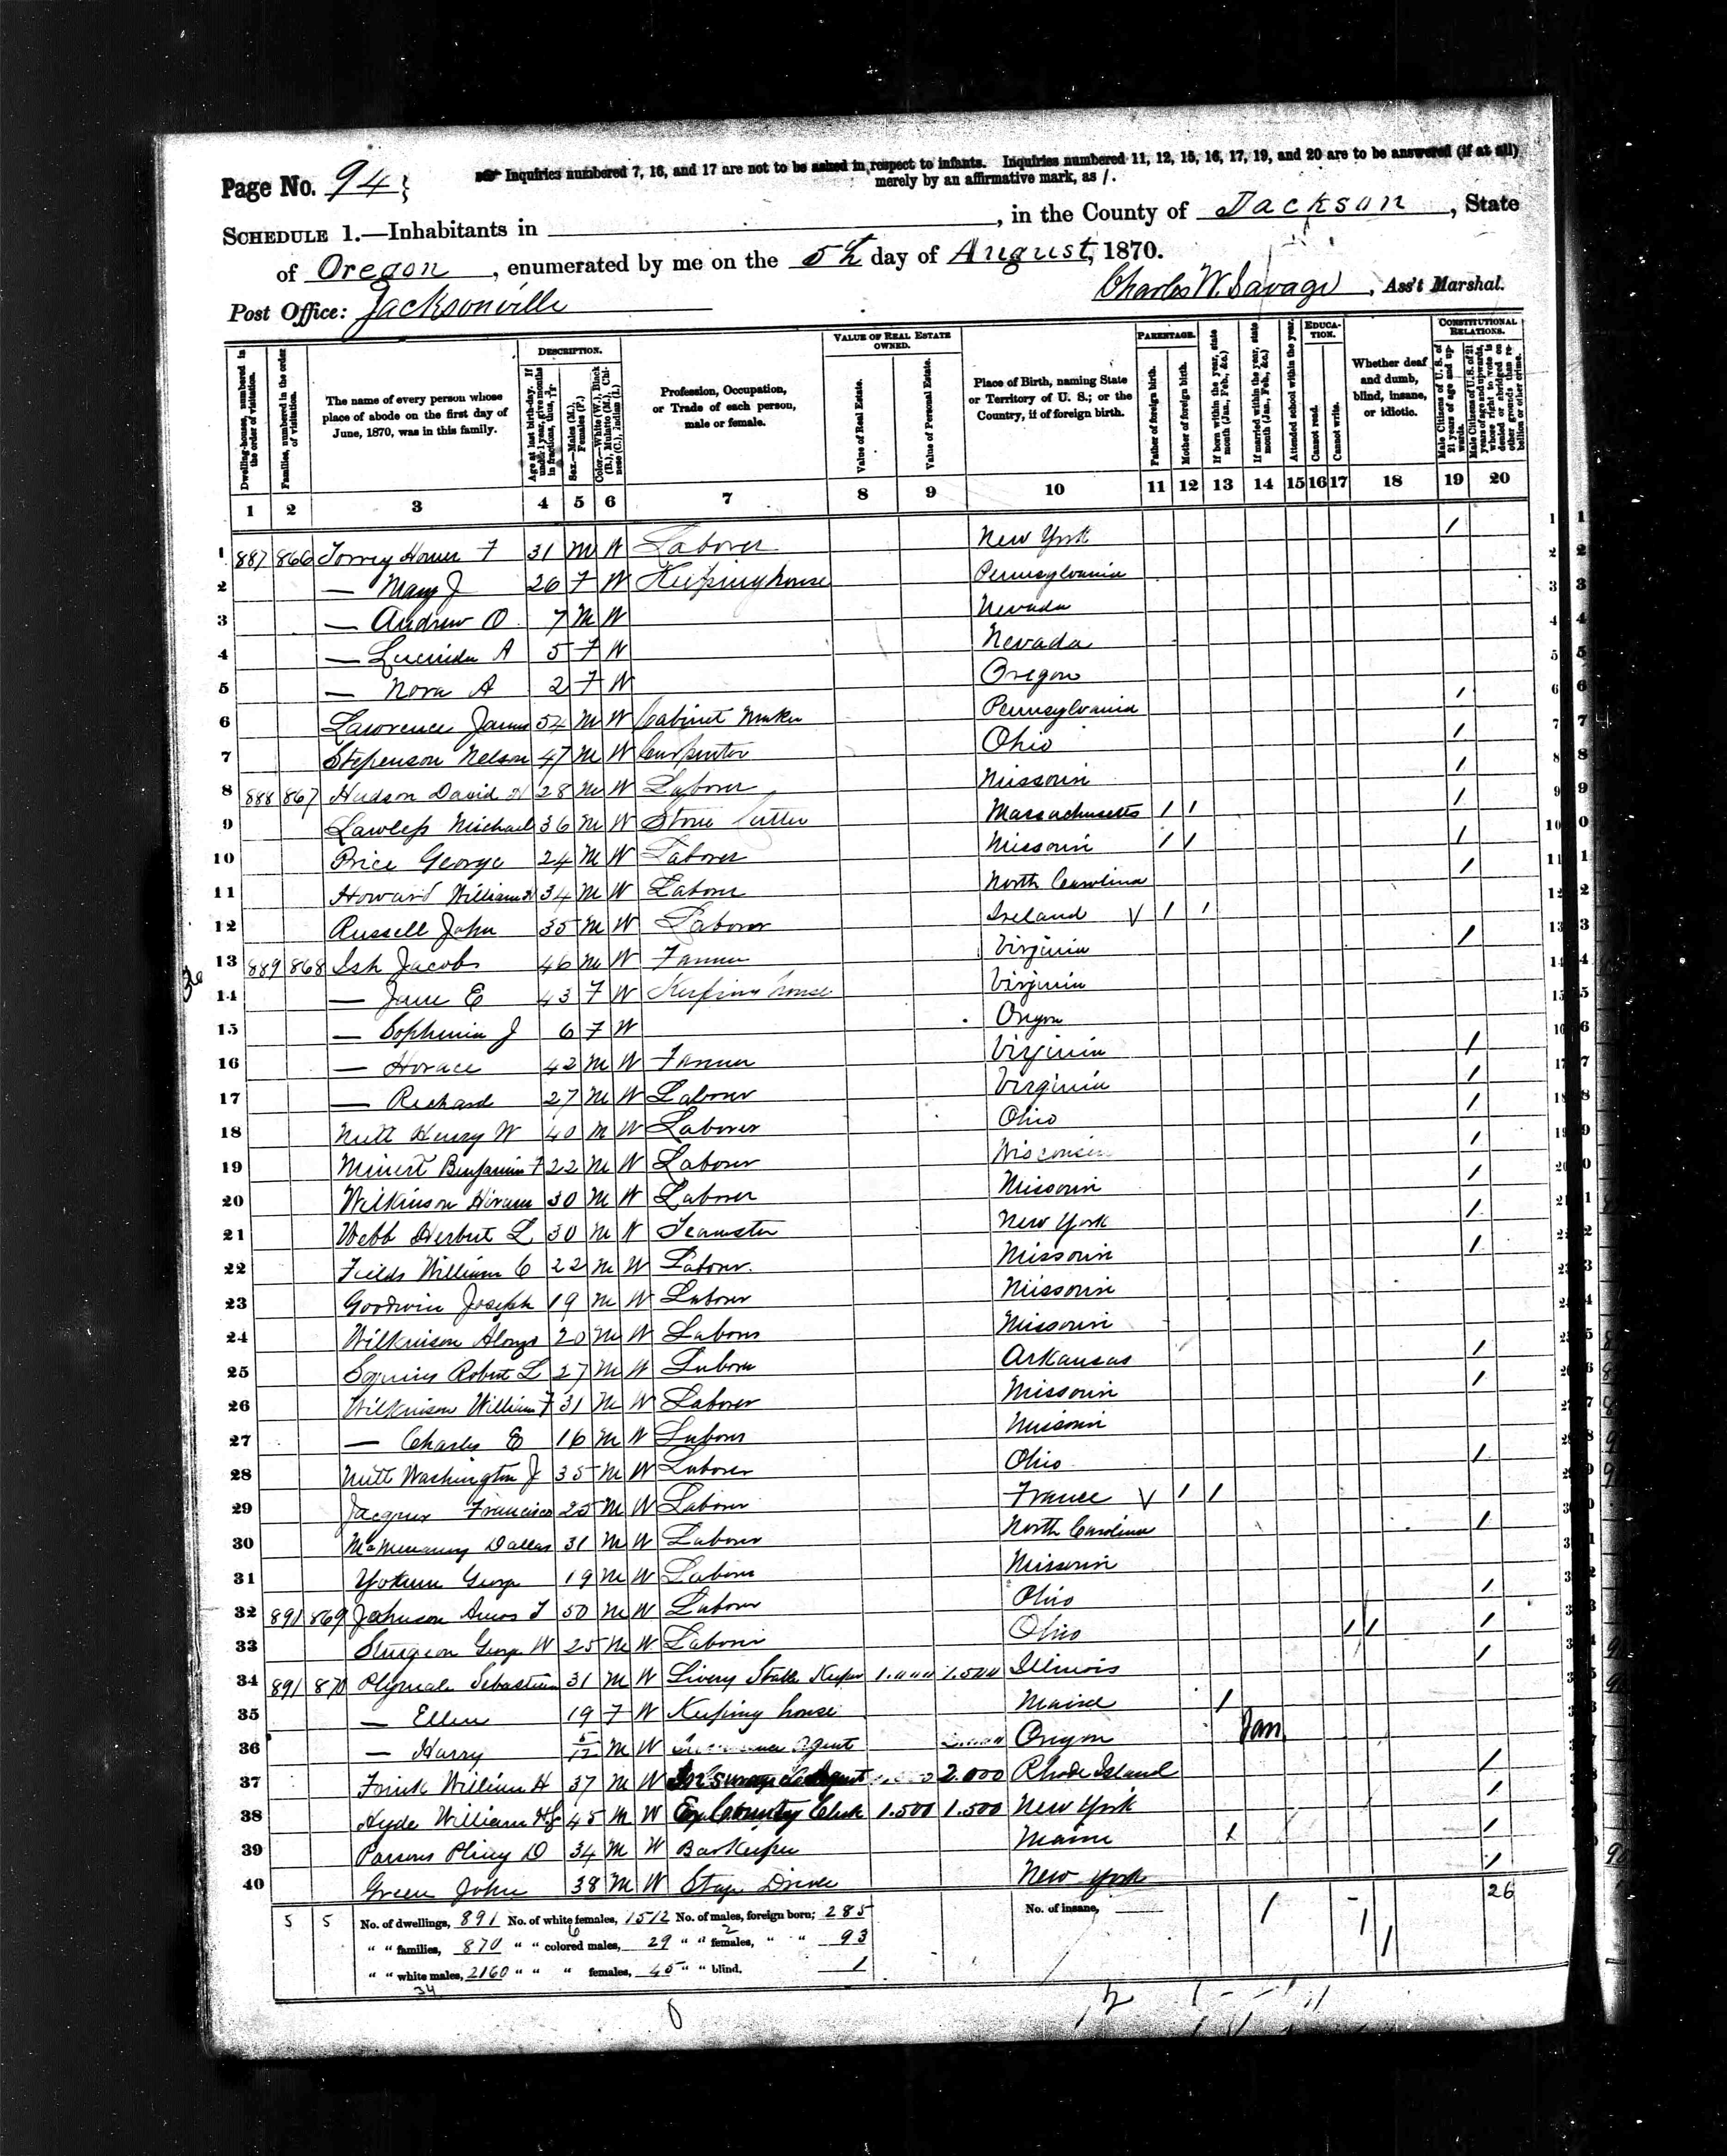 Page No. 94
Inquiries numbered 7, 16, and 17 are not to be asked in respect to infants. Inquiries numbered 11, 12, 15, 16, 17, 19, and 20 are to be answered (if at all)
merely by an affirmative mark, as /.
SCHEDULE 1.—Inhabitants in , in the County of Jackson, State
of Oregon, enumerated by me on the 5th day of August, 1870.
Post Office: Jacksonville
Charles W. Savage, Ass't Marshal.
Dwelling-houses, numbered in the order of visitation.
Families, numbered in the order of visitation.
The name of every person whose place of abode on the first day of June, 1870, was in this family.
DESCRIPTION.
Age at last birth-day. If under 1 year, give months in fractions, thus, 3/12
Sex.—Males (M.), Females (F.)
Color.—White (W.), Black (B.), Mulatto (M.), Chinese (C.), Indian (I.)
Profession, Occupation, or Trade of each person, male or female.
VALUE OF REAL ESTATE OWNED.
Value of Real Estate.
Value of Personal Estate.
Place of Birth, naming State or Territory of U. S.; or the Country, if of foreign birth.
PARENTAGE.
Father of foreign birth.
Mother of foreign birth.
If born within the year, state month (Jan., Feb., &c.)
If married within the year, state month (Jan., Feb., &c.)
Attended school within the year.
EDUCATION.
Cannot read.
Cannot write.
Whether deaf and dumb, blind, insane, or idiotic.
CONSTITUTIONAL RELATIONS.
Male Citizens of U. S. of 21 years of age and upwards.
Male Citizens of U. S. of 21 years of age and upwards, whose right to vote is denied or abridged on other grounds than rebellion or other crime.
1 2 3 4 5 6 7 8 9 10 11 12 13 14 15 16 17 18 19 20
1 887 866 Torrey Homer F 31 M W Laborer New York /
2 — Mary J 26 F W Keeping house Pennsylvania
3 — Andrew O 7 M W Nevada
4 — Lucinda A 5 F W Nevada
5 — Nora A 2 F W Oregon
6 Lawrence James 54 M W Cabinet Maker Pennsylvania /
7 Stepenson Nelson 47 M W Carpenter Ohio /
8 888 867 Hudson David H 28 M W Laborer Missouri /
9 Lawless Michael 36 M W Stone Cutter Massachusetts / / /
10 Price George 24 M W Laborer Missouri / / /
11 Howard William H 34 M W Laborer North Carolina /
12 Russell John 35 M W Laborer Ireland V / /
13 889 868 Ish Jacob 46 M W Farmer Virginia /
14 — Jane E 43 F W Keeping house Virginia
15 — Sophenia J 6 F W Oregon
16 — Horace 42 M W Farmer Virginia /
17 — Richard 27 M W Laborer Virginia /
18 Nutt Henry W 40 M W Laborer Ohio /
19 Benjamin F 22 M W Laborer Wisconsin /
20 Wilkinson Hiram 30 M W Laborer Missouri /
21 Webb Herbert L 30 M W Teamster New York /
22 Fields William C 22 M W Laborer Missouri /
23 Goodwin Joseph 19 M W Laborer Missouri
24 Wilkinson Alonzo 20 M W Laborer Missouri
25 Squires Robert L 27 M W Laborer Arkansas /
26 Wilkinson William F 31 M W Laborer Missouri /
27 — Charles E 16 M W Laborer Missouri
28 Nutt Washington J 35 M W Laborer Ohio /
29 Jacques Francisco 25 M W Laborer France V / /
30 Dallas 31 M W Laborer North Carolina /
31 Yokum George 19 M W Laborer Missouri
32 891 869 Johnson Amos T 50 M W Laborer Ohio /
33 Sturgeon George W 25 M W Laborer Ohio / / /
34 891 870 Plymale Sebastian 31 M W Livery Stable Keeper 1.000 1.500 Illinois /
35 — Ellen 19 F W Keeping house Maine /
36 — Harry 5/12 M W Oregon Jan
37 Frink William H 37 M W Insurance Agent 2.000 Rhode Island /
38 Hyde William H 45 M W Ex County Clerk 1.500 1.500 New York /
39 Parsons Pliny D 34 M W Bar Keeper Maine / /
40 Green John 38 M W Stage Driver New York /
5 5 No. of dwellings, 891 No. of white females, 1512 No. of males, foreign born; 285 No. of insane, 26
" " families, 870 " " colored males, 29 " " females, " " 93
" " white males, 2160 " " " females, 45 " " blind, 1
34